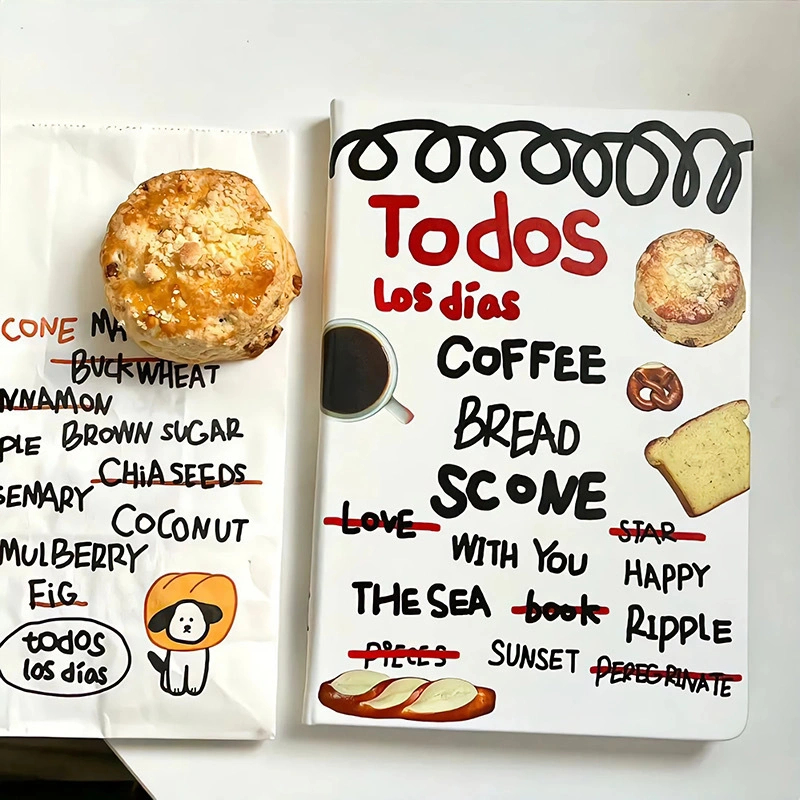 CONE MA
BUCKWHEAT
NNAMON
PLE BROWN SUGAR
CHIA SEEDS
SEMARY
COCONUT
MULBERRY
FIG
todos
los días
Todos
Los días
COFFEE
BREAD
SCONE
LOVE
STAR
WITH YOU
HAPPY
THE SEA
book
RIPPLE
PIECES
SUNSET
PEREGRINATE